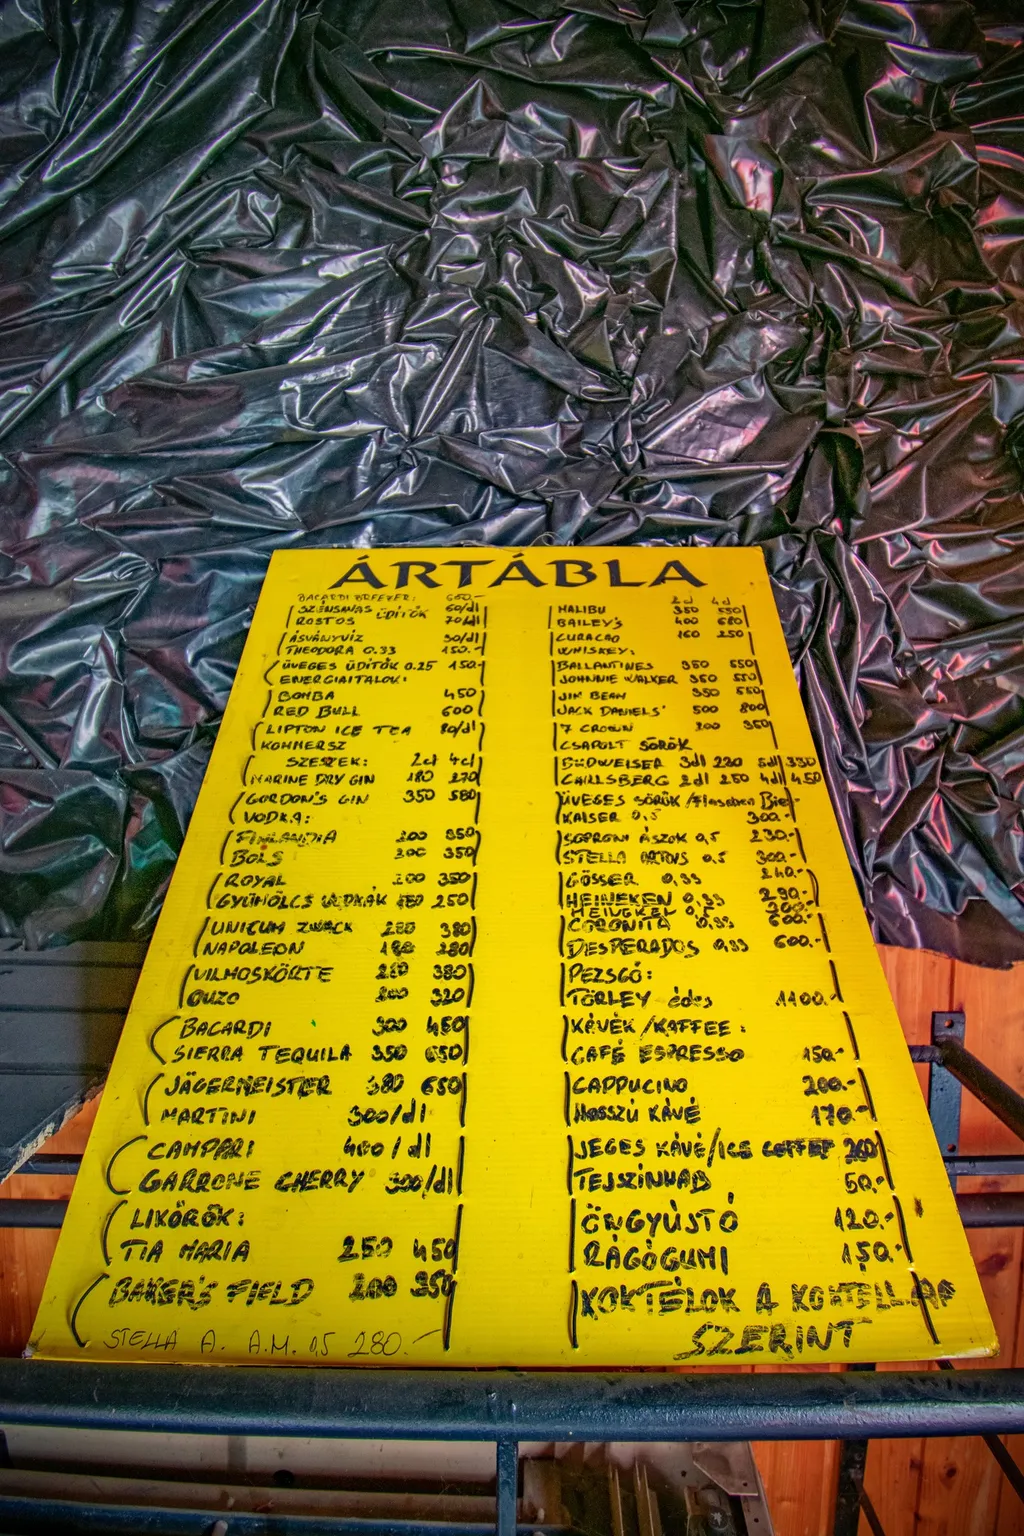 ÁRTÁBLA
BACARDI BREEZER: 600.-
SZÉNSAVAS ÜDÍTŐK 60/dl
ROSTOS 70/dl
ÁSVÁNYVÍZ 30/dl
THEODORA 0.33 150.-
ÜVEGES ÜDÍTŐK 0.25 150.-
ENERGIAITALOK:
BOMBA 450
RED BULL 600
LIPTON ICE TEA 80/dl
KOMMERSZ
SZESZEK: 2cl 4cl
MARINE DRY GIN 180 270
GORDON'S GIN 350 580
VODKA:
FINLANDIA 200 350
BOLS 200 350
ROYAL 200 350
GYÜMÖLCS VODKÁK 250
UNICUM ZWACK 280 380
NAPOLEON 180 280
VILMOSKÖRTE 260 380
OUZO 200 320
BACARDI 300 450
SIERRA TEQUILA 350 650
JÄGERMEISTER 380 650
MARTINI 300/dl
CAMPARI 400/dl
GARRONE CHERRY 300/dl
LIKŐRÖK:
TIA MARIA 250 450
BAKER'S FIELD 200 350
STELLA A. A.M. 0,5 280.-
2cl 4cl
MALIBU 350 550
BAILEY'S 400 680
CURACAO 160 250
WHISKEY:
BALLANTINES 350 550
JOHNNIE WALKER 350 550
JIM BEAN 350 550
JACK DANIELS' 500 800
7 CROWN 200 350
CSAPOLT SÖRÖK
BUDWEISER 3dl 220 5dl 330
CARLSBERG 2dl 250 4dl 450
ÜVEGES SÖRÖK /Flaschen Bier
KAISER 0,5 300.-
SOPRONI ÁSZOK 0,5 230.-
STELLA ARTOIS 0,5 300.-
GÖSSER 0,33 240.-
HEINEKEN 0,33 290.-
HEINEKEN 0,5
CORONITA 0,33 600.-
DESPERADOS 0,33 600.-
PEZSGŐ:
TÖRLEY édes 1100.-
KÁVÉK /KAFFEE:
CAFÉ ESPRESSO 150.-
CAPPUCINO 200.-
HOSSZÚ KÁVÉ 170.-
JEGES KÁVÉ/ICE COFFEE 260
TEJSZÍNHAB 50.-
ÖNGYÚJTÓ 120.-
RÁGÓGUMI 150.-
KOKTÉLOK A KOKTÉLLAP
SZERINT